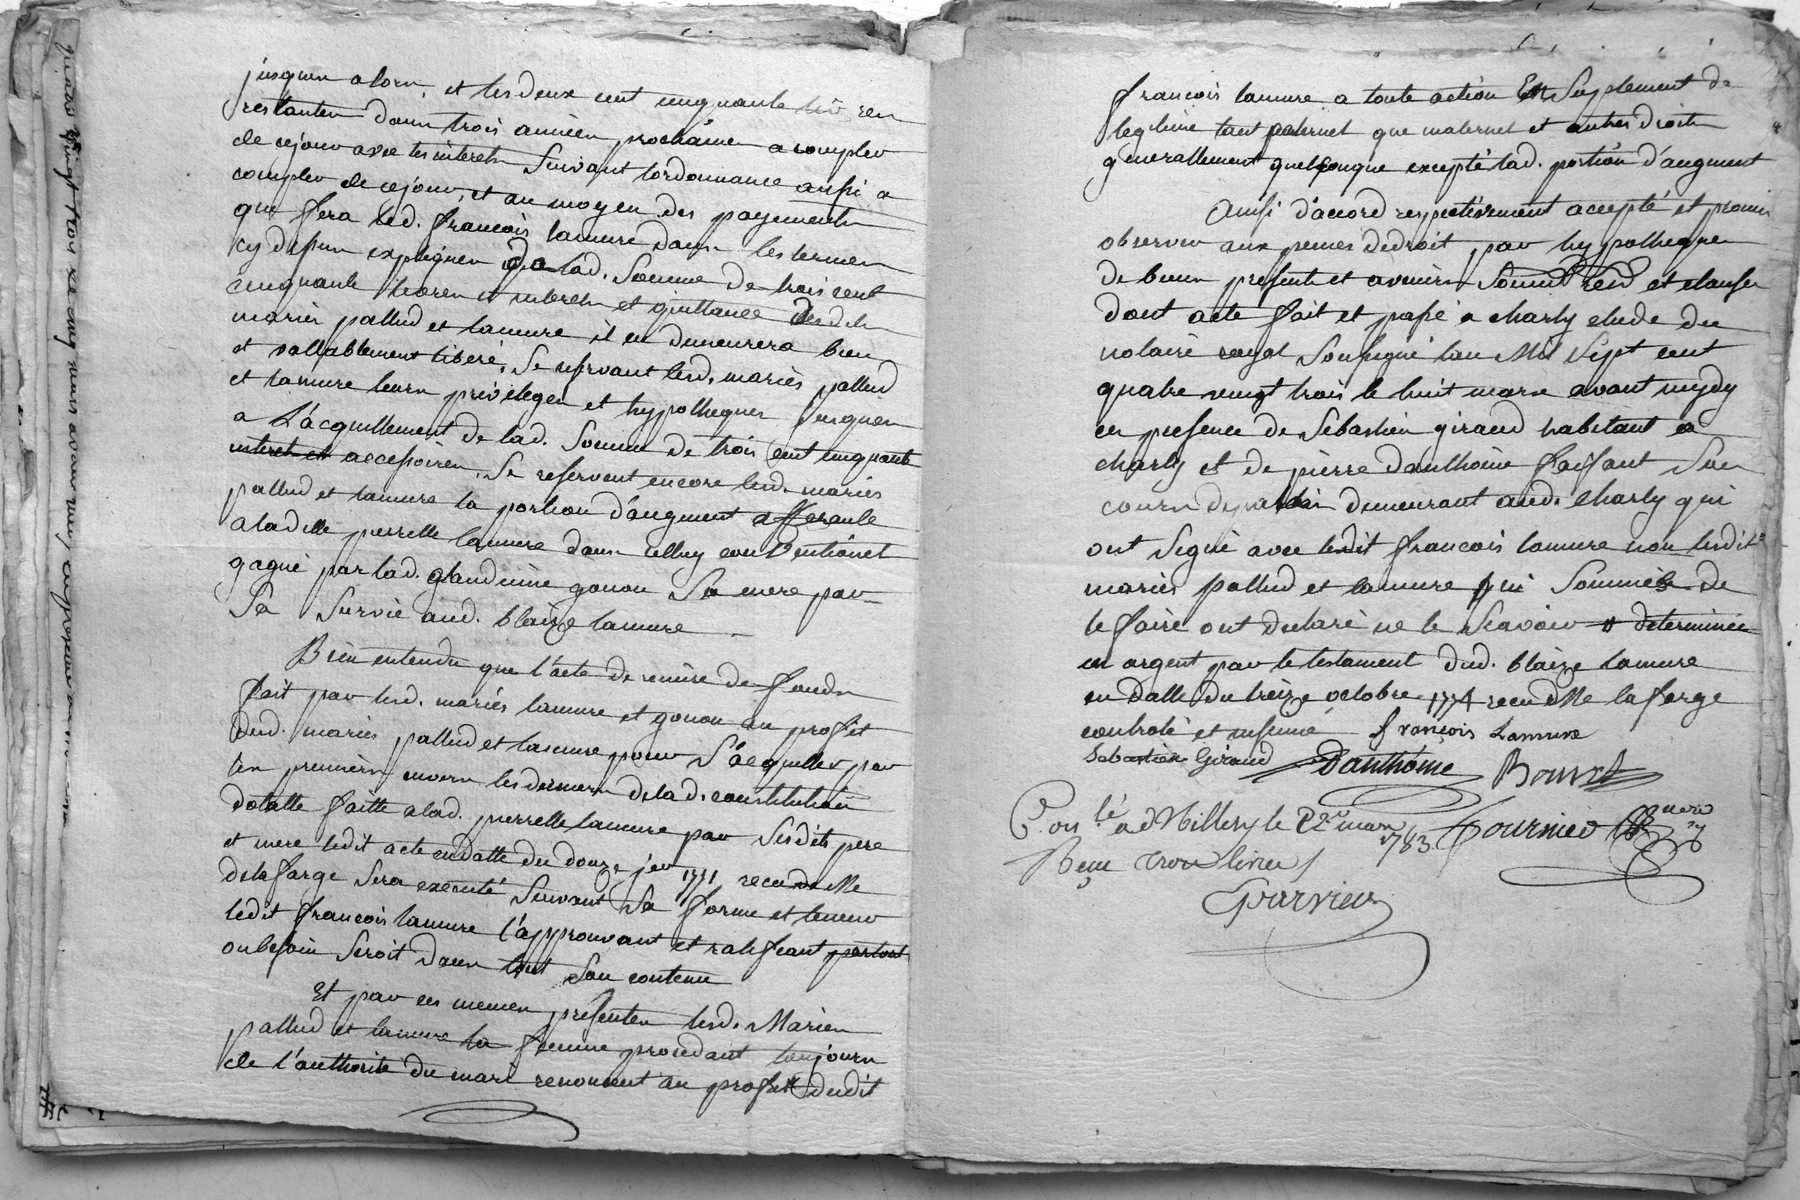 jusques alors, et les deux cent cinquante livres
restantes dans trois années prochaines a compter
de cejour avec les interets suivant lordonnance aussi a
compter de cejour, et au moyen des payements
que fera led. françois lamure dans les termes
cy dessus expliques de lad. Somme de trois cent
cinquante livres et interets et quittance desdits
mariés pallud et lamure il en demeurera bien
et vallablement liberé, Se reservant lesd. mariés pallud
et lamure leurs privileges et hypotheques jusques
a L'acquittement de lad. Somme de trois cent cinquante
interet et accessoires, Se reservent encore lesd. mariés
pallud et lamure la portion d'augment afferante
aladitte pierrette lamure dans celluy conventionel
gagné par lad. glaudinne gonon Sa mere par
Sa Survie aud. blaize lamure
Bien entendu que l'acte de remise de fonds
fait par lesd. mariés lamure et gonon au profit
desd. mariés pallud et lamure pour S'acquitter par
les premiers envers les derniers de lad. constitution
dotalle faitte alad. pierrette lamure par Sesdits pere
et mere ledit acte endatte du douze jer 1771 recu Me
delafarge Sera exécuté Suivant Sa forme et teneur
ledit françois lamure l'approuvant et ratifiant partout
oubesoin Seroit dans tout Son contenu
Et par ces memes présentes lesd. Mariés
pallud et lamure la femme procedant toujours
de l'authorité du mari renoncent au profit dudit
françois lamure a toute action En Suplement de
legitime tant paternel que maternel et autres droits
generallement quelconque excepté lad. portion d'augment
Ainsi d'accord respectivement accepté et promis
observer aux peines dedroit, par hypotheques
de biens présents et avenirs Soumis reno et clauses
dont acte fait et passé a charly etude du
notaire royal Soussigné lan Mil Sept cent
quatre vingt trois le huit mars avant mydy
en presence de Sébastien giraud habitant a
charly et de pierre danthoine faisant Son
cours demeurant aud. charly qui
ont Signé avec ledit françois lamure non lesdits
mariés pallud et lamure qui Sommés de
le faire ont declaré ne le Scavoir # determinée
en argent par le testament dud. blaize lamure
en datte du treize octobre 1774 recu Me lafarge
controlé et insinué françois Lamure
Sebastien Giraud Danthoine Bouvet
Con.lé a Millery le 22e mars 1783 Fournier
Recu trois livres